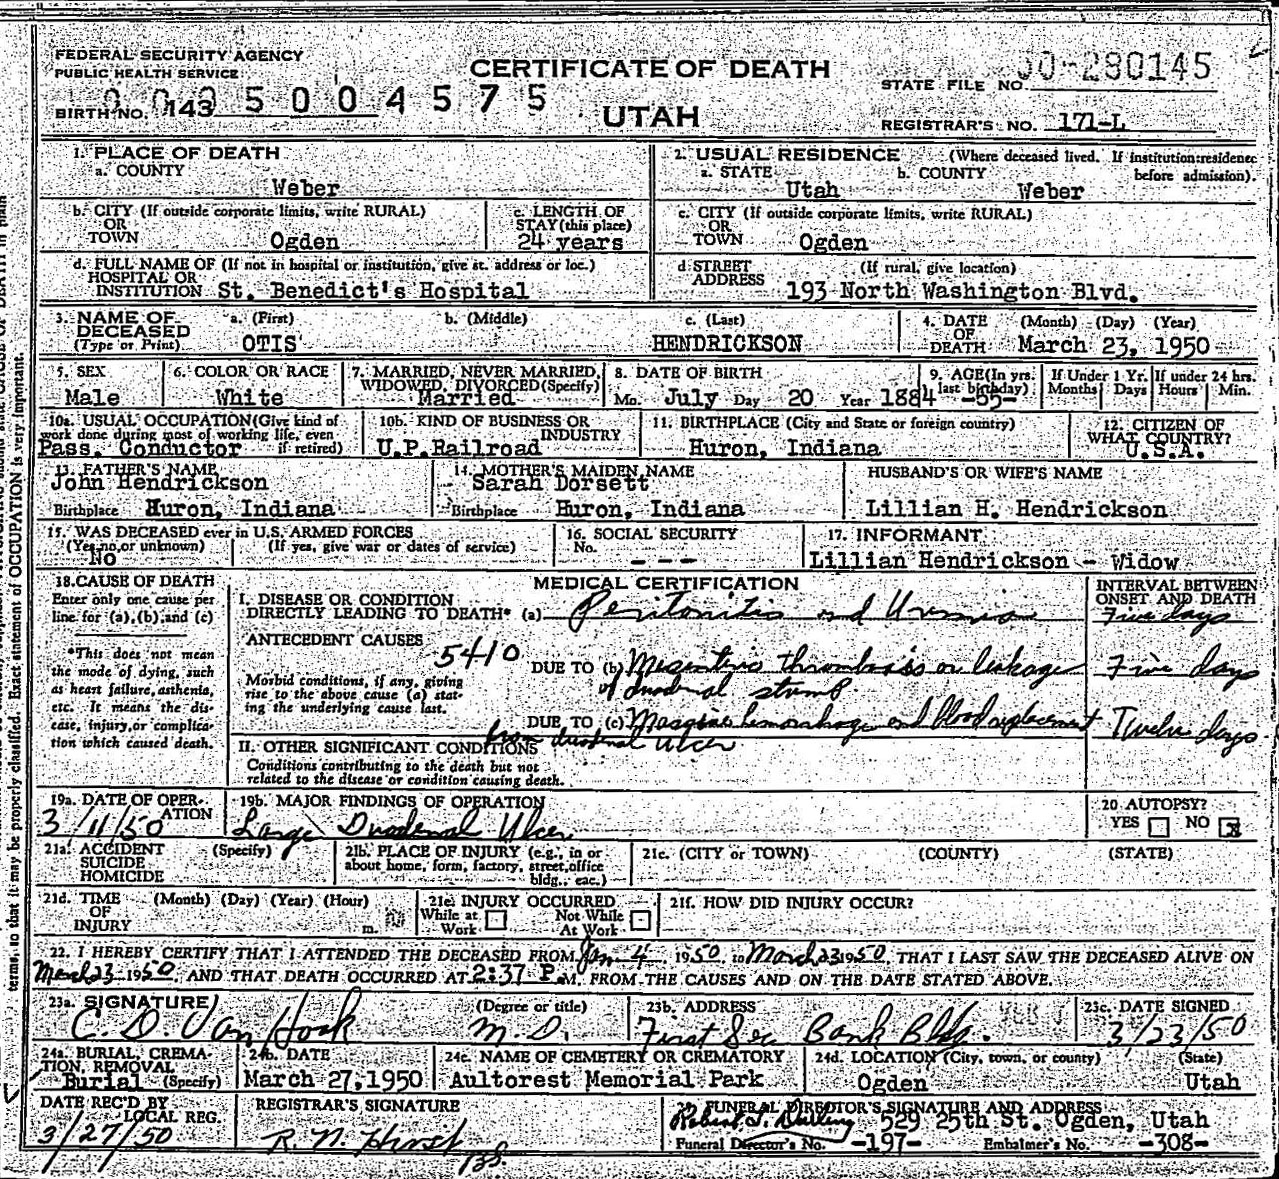 FEDERAL SECURITY AGENCY
PUBLIC HEALTH SERVICE
CERTIFICATE OF DEATH
UTAH
STATE FILE NO. 50-290145
BIRTH NO. 143
5 0 0 4 5 7 5
REGISTRAR'S NO. 171-L
1. PLACE OF DEATH
a. COUNTY Weber
2. USUAL RESIDENCE (Where deceased lived. If institution: residence before admission).
a. STATE Utah b. COUNTY Weber
b. CITY (If outside corporate limits, write RURAL) OR TOWN Ogden
c. LENGTH OF STAY (this place) 24 years
c. CITY (If outside corporate limits, write RURAL) OR TOWN Ogden
d. FULL NAME OF (If not in hospital or institution, give st. address or loc.) HOSPITAL OR INSTITUTION St. Benedict's Hospital
d STREET ADDRESS (If rural, give location) 193 North Washington Blvd.
3. NAME OF DECEASED (Type or Print) a. (First) b. (Middle) c. (Last)
OTIS HENDRICKSON
4. DATE OF DEATH (Month) (Day) (Year) March 23, 1950
5. SEX Male
6. COLOR OR RACE White
7. MARRIED, NEVER MARRIED, WIDOWED, DIVORCED (Specify) Married
8. DATE OF BIRTH Mo. July Day 20 Year 1884
9. AGE (In yrs. last birthday) -65-
If Under 1 Yr. Months Days
If under 24 hrs. Hours Min.
10a. USUAL OCCUPATION (Give kind of work done during most of working life, even if retired) Pass. Conductor
10b. KIND OF BUSINESS OR INDUSTRY U.P.Railroad
11. BIRTHPLACE (City and State or foreign country) Huron, Indiana
12. CITIZEN OF WHAT COUNTRY? U.S.A.
13. FATHER'S NAME John Hendrickson
Birthplace Huron, Indiana
14. MOTHER'S MAIDEN NAME Sarah Dorsett
Birthplace Huron, Indiana
HUSBAND'S OR WIFE'S NAME
Lillian H. Hendrickson
15. WAS DECEASED ever in U.S. ARMED FORCES
(Yes, no, or unknown) (If yes, give war or dates of service)
No
16. SOCIAL SECURITY No. - - -
17. INFORMANT
Lillian Hendrickson - Widow
18. CAUSE OF DEATH
Enter only one cause per line for (a), (b), and (c)
*This does not mean the mode of dying, such as heart failure, asthenia, etc. It means the disease, injury, or complication which caused death.
MEDICAL CERTIFICATION
INTERVAL BETWEEN ONSET AND DEATH
I. DISEASE OR CONDITION DIRECTLY LEADING TO DEATH* (a) Peritonitis and Uremia Five days
ANTECEDENT CAUSES 5410
Morbid conditions, if any, giving rise to the above cause (a) stating the underlying cause last.
DUE TO (b) Mesenteric thrombosis or leakage of duodenal stump. Five days
DUE TO (c) Massive hemorrhage and blood replacement from duodenal ulcer Twelve days
II. OTHER SIGNIFICANT CONDITIONS
Conditions contributing to the death but not related to the disease or condition causing death.
19a. DATE OF OPERATION 3/11/50
19b. MAJOR FINDINGS OF OPERATION
Large Duodenal Ulcer
20 AUTOPSY?
YES NO X
21a. ACCIDENT SUICIDE HOMICIDE (Specify)
21b. PLACE OF INJURY (e.g., in or about home, form, factory, street, office bldg., eac.)
21c. (CITY or TOWN) (COUNTY) (STATE)
21d. TIME OF INJURY (Month) (Day) (Year) (Hour) m.
21e. INJURY OCCURRED
While at Work Not While At Work
21f. HOW DID INJURY OCCUR?
22. I HEREBY CERTIFY THAT I ATTENDED THE DECEASED FROM Jan 4, 1950, to March 23 1950, THAT I LAST SAW THE DECEASED ALIVE ON
March 23 1950, AND THAT DEATH OCCURRED AT 2:37 P.M. FROM THE CAUSES AND ON THE DATE STATED ABOVE.
23a. SIGNATURE (Degree or title)
C. D. Van Hook M.D.
23b. ADDRESS
First Sec Bank Bldg.
23c. DATE SIGNED
3/23/50
24a. BURIAL, CREMATION, REMOVAL (Specify) Burial
24b. DATE
March 27, 1950
24c. NAME OF CEMETERY OR CREMATORY
Aultorest Memorial Park
24d. LOCATION (City, town, or county) (State)
Ogden Utah
DATE REC'D BY LOCAL REG.
3/27/50
REGISTRAR'S SIGNATURE
FUNERAL DIRECTOR'S SIGNATURE AND ADDRESS
529 25th St. Ogden, Utah
Funeral Director's No. -197- Embalmer's No. -308-
terms, so that it may be properly classified. Exact statement of OCCUPATION is very important.